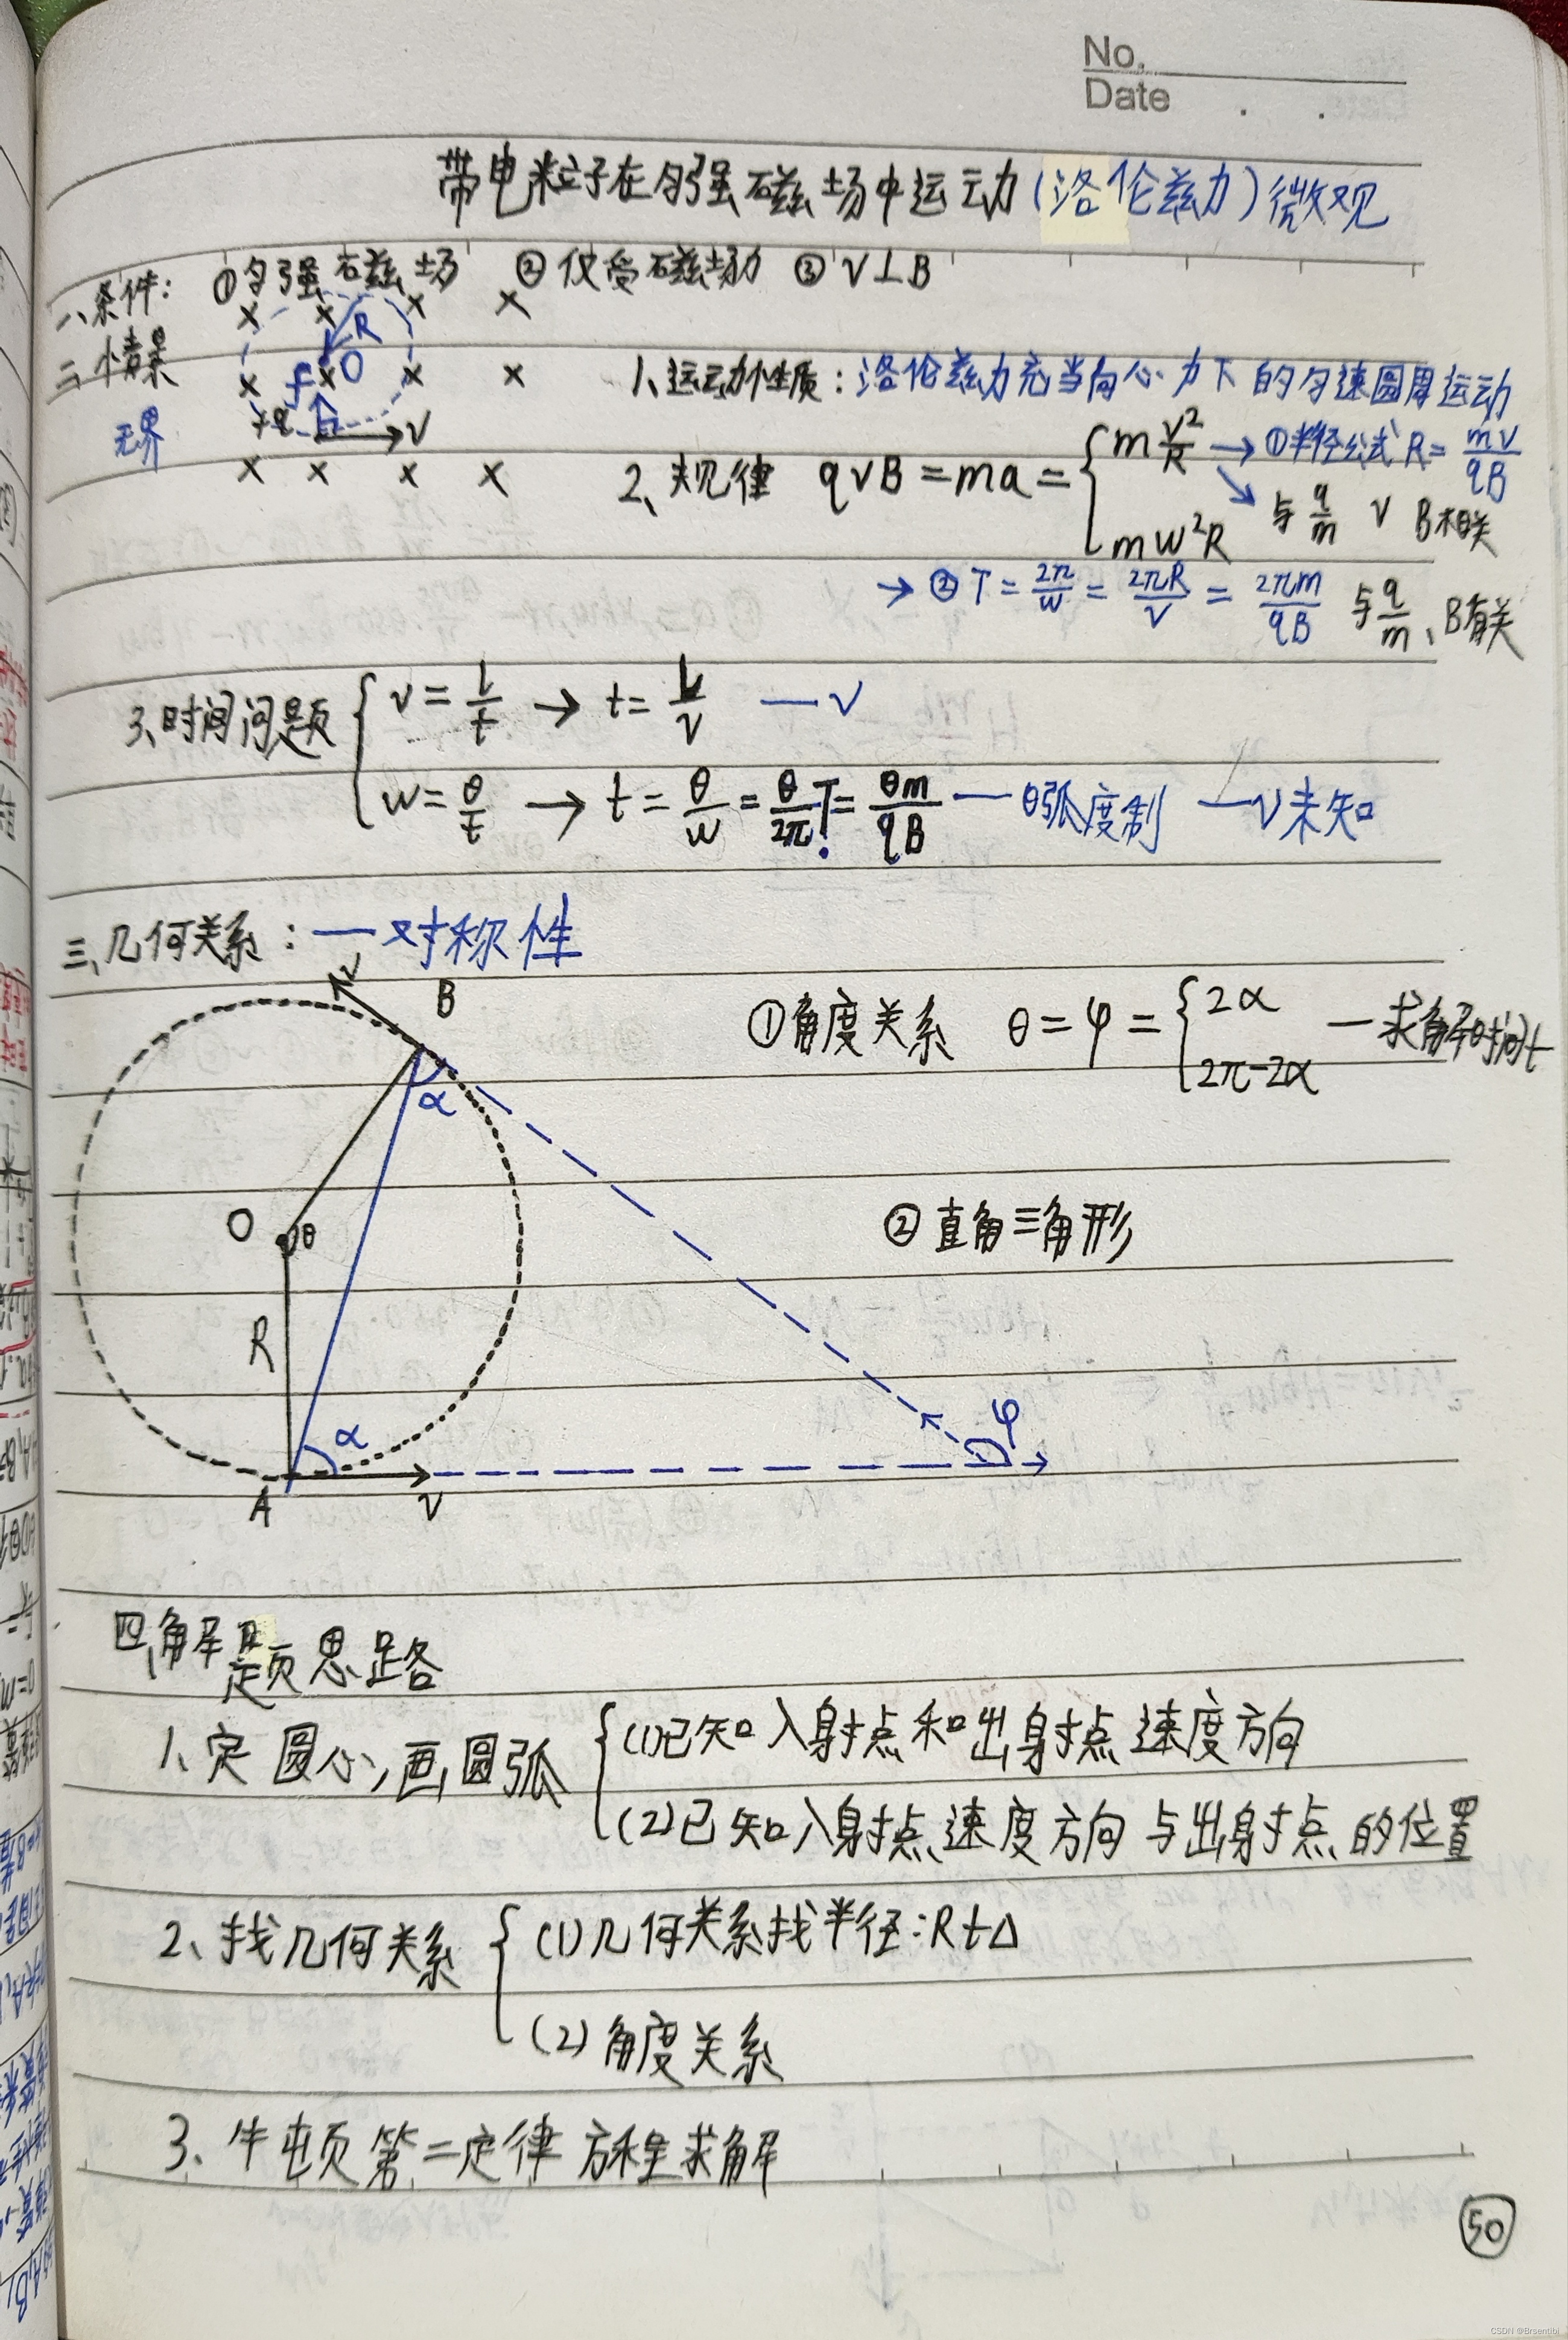 No.
Date . .
带电粒子在匀强磁场中运动(洛伦兹力)微观
一、条件: ①匀强磁场 ②仅受磁场力 ③v⊥B
二、情景
无界
× × × ×
R
× f × O × ×
+q v
× × × ×
1、运动性质:洛伦兹力充当向心力下的匀速圆周运动
2、规律 qvB=ma={ m v²/R → ①半径公式 R=mv/qB
↘ 与 q/m v B相关
mw²R
→ ②T=2π/w=2πR/v=2πm/qB 与q/m、B有关
3、时间问题{ v=l/t → t=l/v —v
w=θ/t → t=θ/w=θ/2π T=θm/qB —θ弧度制 —v未知
三、几何关系:—对称性
v B
①角度关系 θ=φ={ 2α
2π-2α —求解时间t
α
②直角三角形
O θ
R
α φ
A v
四、解题思路
1、定圆心,画圆弧{ (1)已知入射点和出射点速度方向
(2)已知入射点速度方向与出射点的位置
2、找几何关系{ (1)几何关系找半径:Rt△
(2)角度关系
3、牛顿第二定律方程求解
50
CSDN @Brsentibi